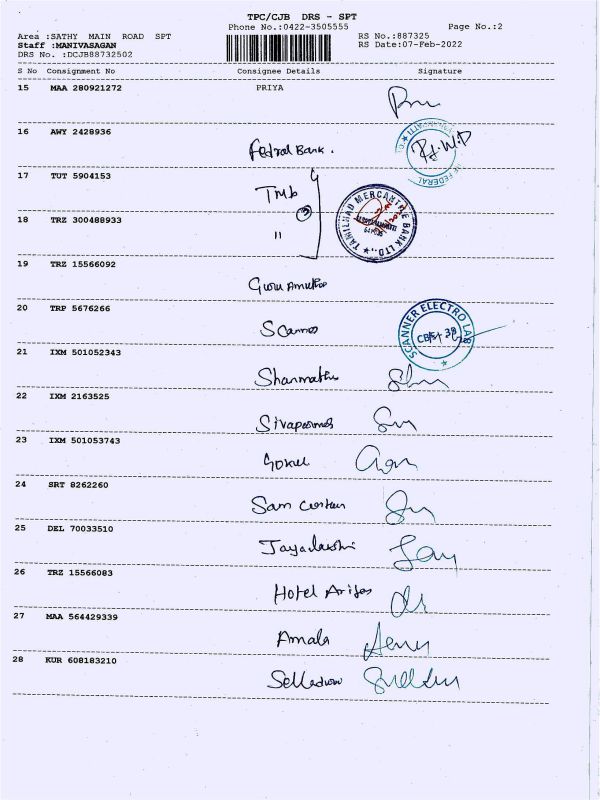 TPC/CJB DRS - SPT
Phone No.:0422-3505555 Page No.:2
Area :SATHY MAIN ROAD SPT RS No.:887325
Staff :MANIVASAGAN RS Date:07-Feb-2022
DRS No. :DCJB88732502
S No Consignment No Consignee Details Signature
15 MAA 280921272 PRIYA
16 AWY 2428936
Fedral Bank.
17 TUT 5904153
TMb
3
TAMILNAD MERCANTILE BANK LTD.
18 TRZ 300488933
"
19 TRZ 15566092
Guru
20 TRP 5676266
Scanner
SCANNER ELECTRO LAB
21 IXM 501052343
Shanmathi
22 IXM 2163525
23 IXM 501053743
Gokul
24 SRT 8262260
Sam
25 DEL 70033510
Jayalakshmi
26 TRZ 15566083
Hotel
27 MAA 564429339
Amala
28 KUR 608183210